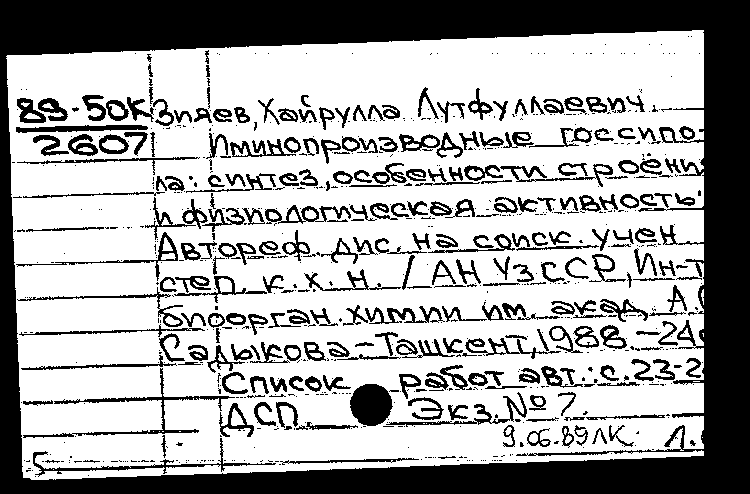 89-50К Зияев, Хайрулла Лутфуллаевич.
2607 Иминопроизводные госсипо-
ла: синтез, особенности строения
и физиологическая активность:
Автореф. дис. на соиск. учен
степ. к. х. н. / АН УзССР, Ин-т
биоорган. химии им. акад. А.
Садыкова. - Ташкент, 1988. - 24
Список работ авт.: с. 23-2
ДСП. Экз. № 7.
9.06.89 ЛК. Л.
5.